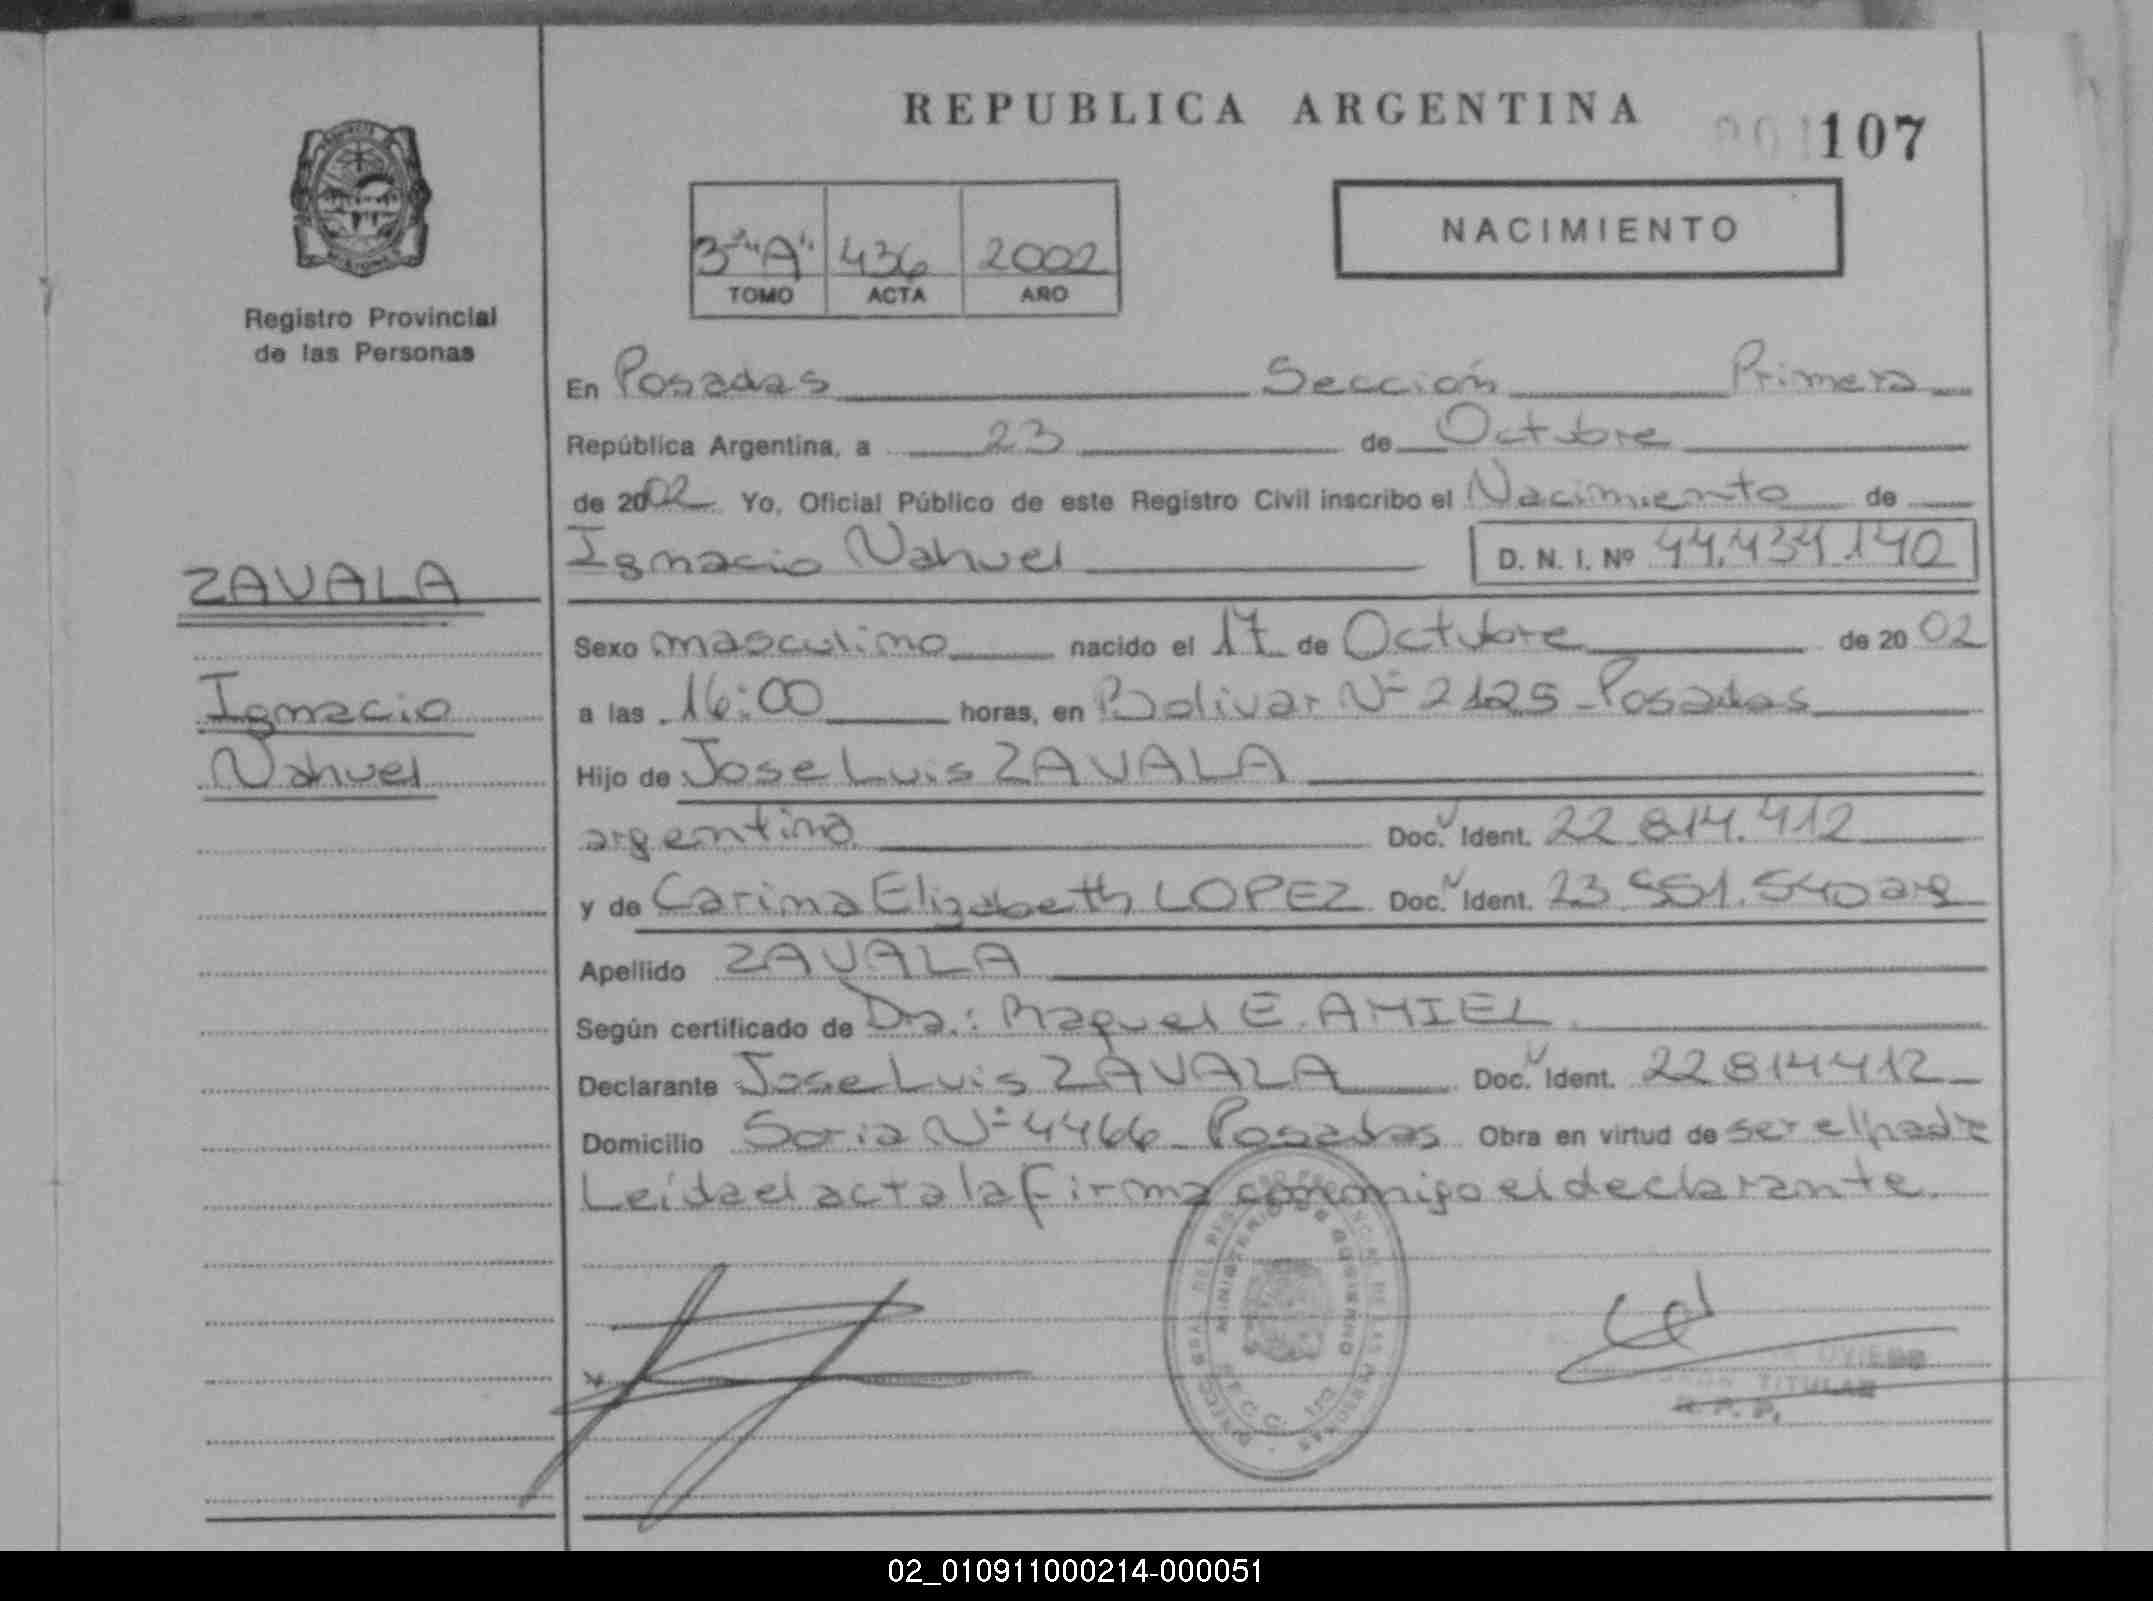 REPUBLICA ARGENTINA
107
NACIMIENTO
3º "A" 436 2002
TOMO ACTA AÑO
Registro Provincial
de las Personas
En Posadas Sección Primera
República Argentina, a 23 de Octubre
de 2002 Yo, Oficial Público de este Registro Civil inscribo el Nacimiento de
Ignacio Nahuel D. N. I. Nº 44.434.140
ZAVALA
Ignacio
Nahuel
Sexo masculino nacido el 17 de Octubre de 20 02
a las 16:00 horas, en Bolivar Nº 2125 - Posadas
Hijo de Jose Luis ZAVALA
argentino Doc. Ident. 22.814.412
y de Carina Elizabeth LOPEZ Doc. Ident. 23.551.540 arg
Apellido ZAVALA
Según certificado de Dra.: Raquel E. AMIEL
Declarante Jose Luis ZAVALA Doc. Ident. 22814412
Domicilio Soria Nº 4466 - Posadas Obra en virtud de ser el padre
Leída el acta la firma conmigo el declarante.
MINISTERIO DE GOBIERNO
OVIEDO
TITULAR
R. P. P.
02_010911000214-000051